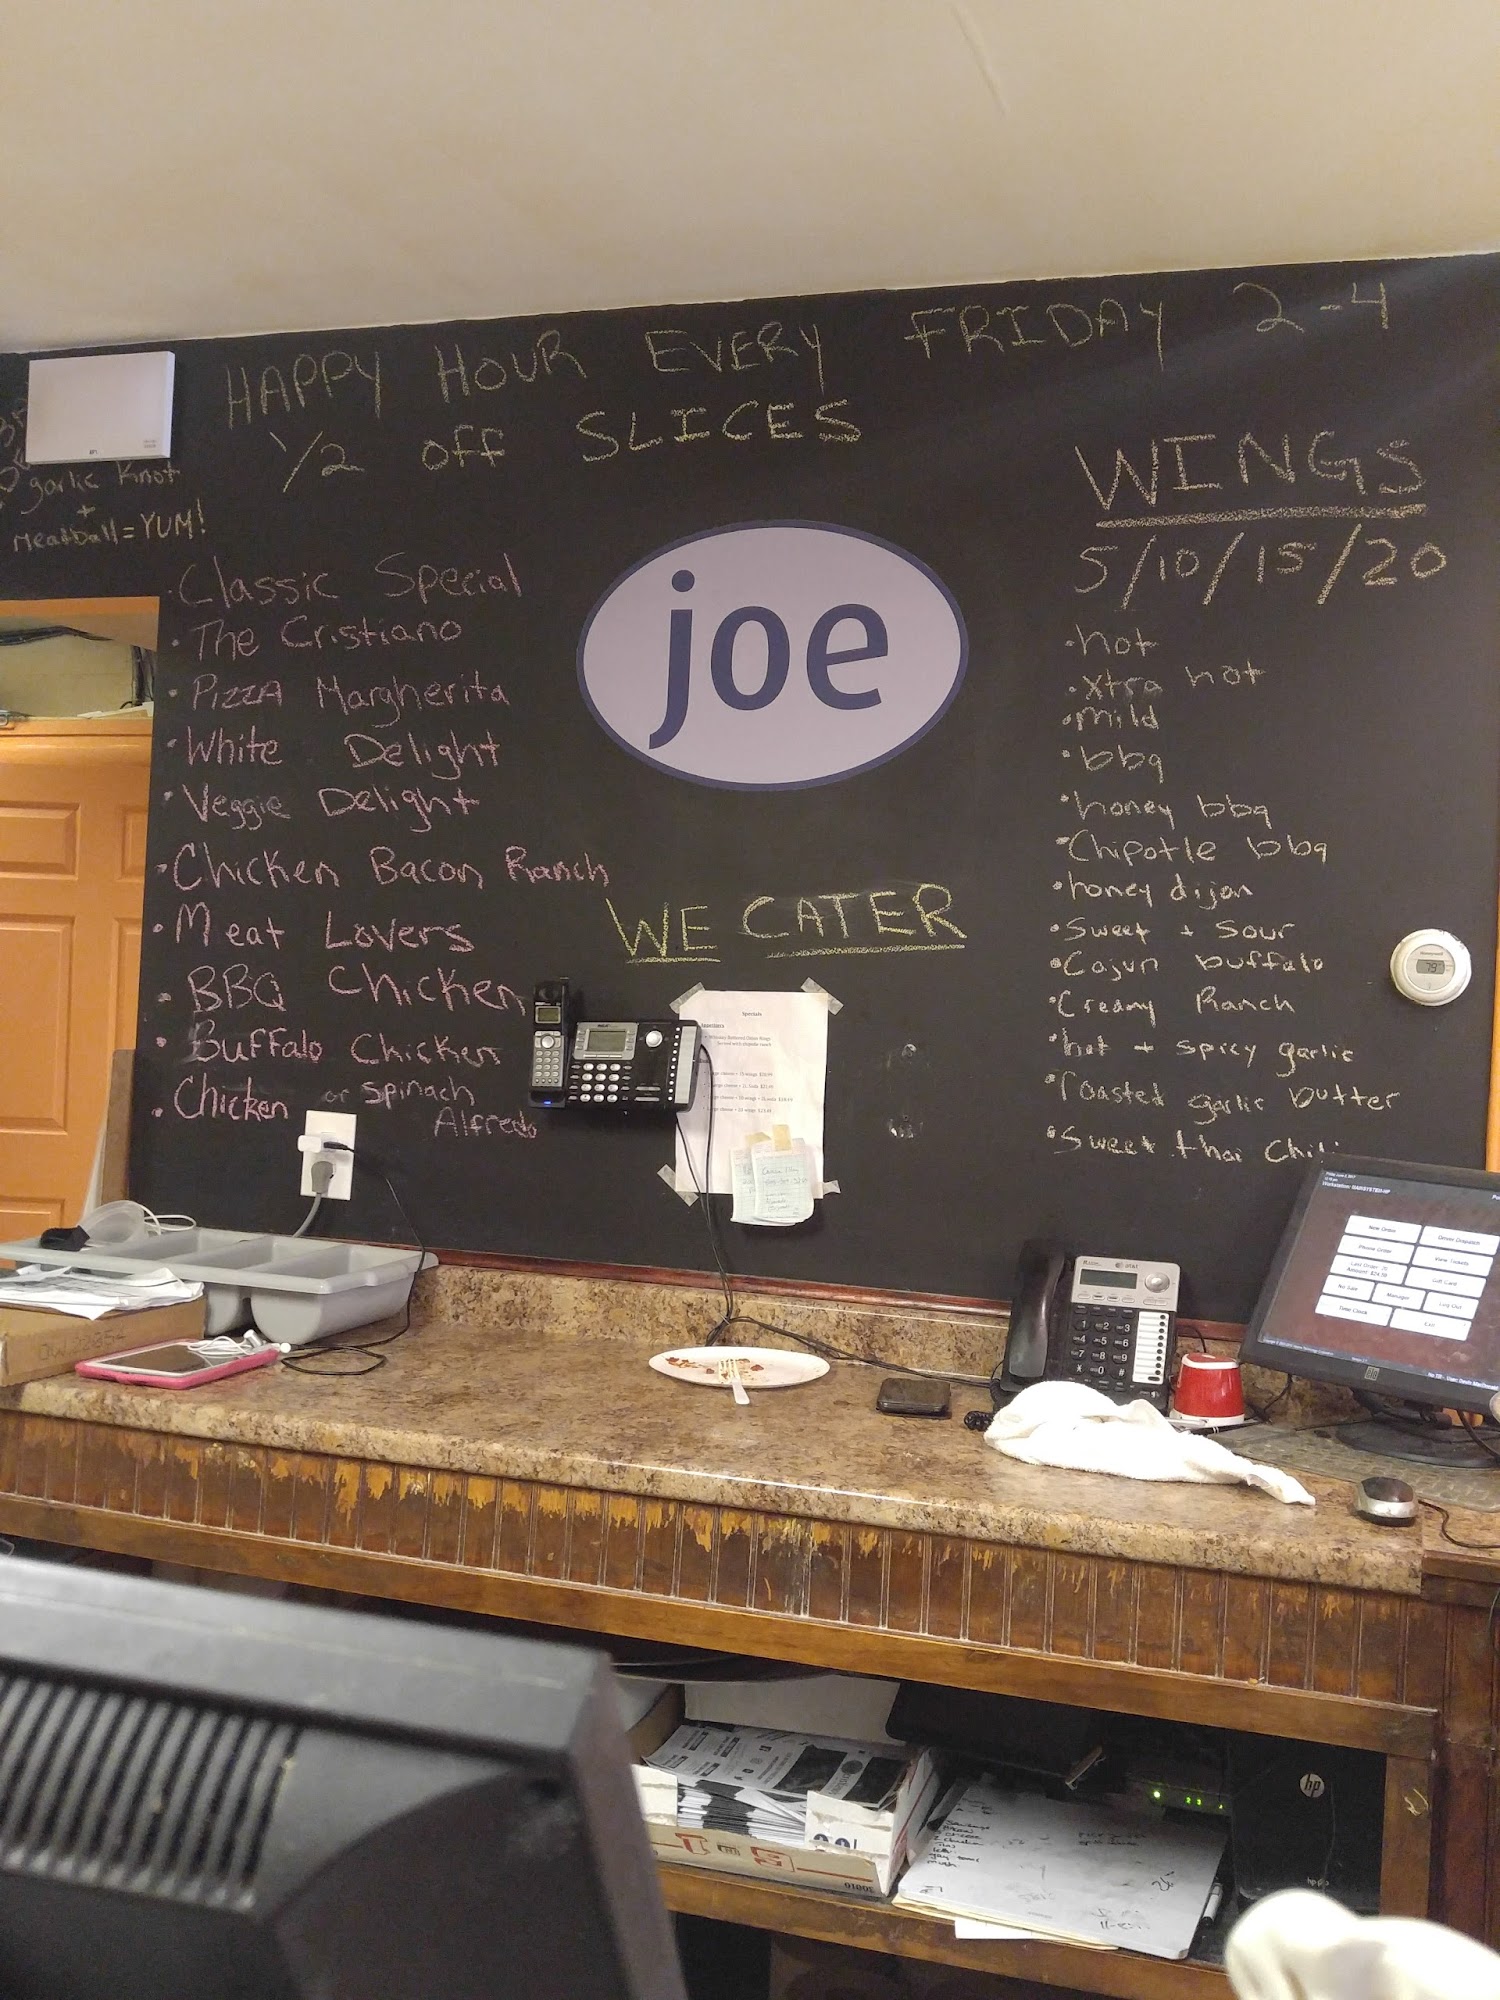 HAPPY HOUR EVERY FRIDAY 2-4
1/2 off SLICES
garlic Knot
+
meatball = YUM!
• Classic Special
• The Cristiano
• Pizza Margherita
• White Delight
• Veggie Delight
• Chicken Bacon Ranch
• Meat Lovers
• BBQ Chicken
• Buffalo Chicken
• Chicken or Spinach
Alfredo
joe
WE CATER
WINGS
5/10/15/20
• hot
• xtra hot
• mild
• bbq
• honey bbq
• Chipotle bbq
• honey dijon
• Sweet + Sour
• Cajun buffalo
• Creamy Ranch
• hot + spicy garlic
• roasted garlic butter
• Sweet thai Chili
Specials
Appetizers
Honeywell
79
at&t
New Order
Driver Dispatch
Phone Order
View Tickets
Last Order:
Gift Card
No Sale
Manager
Log Out
Time Clock
Exit
hp